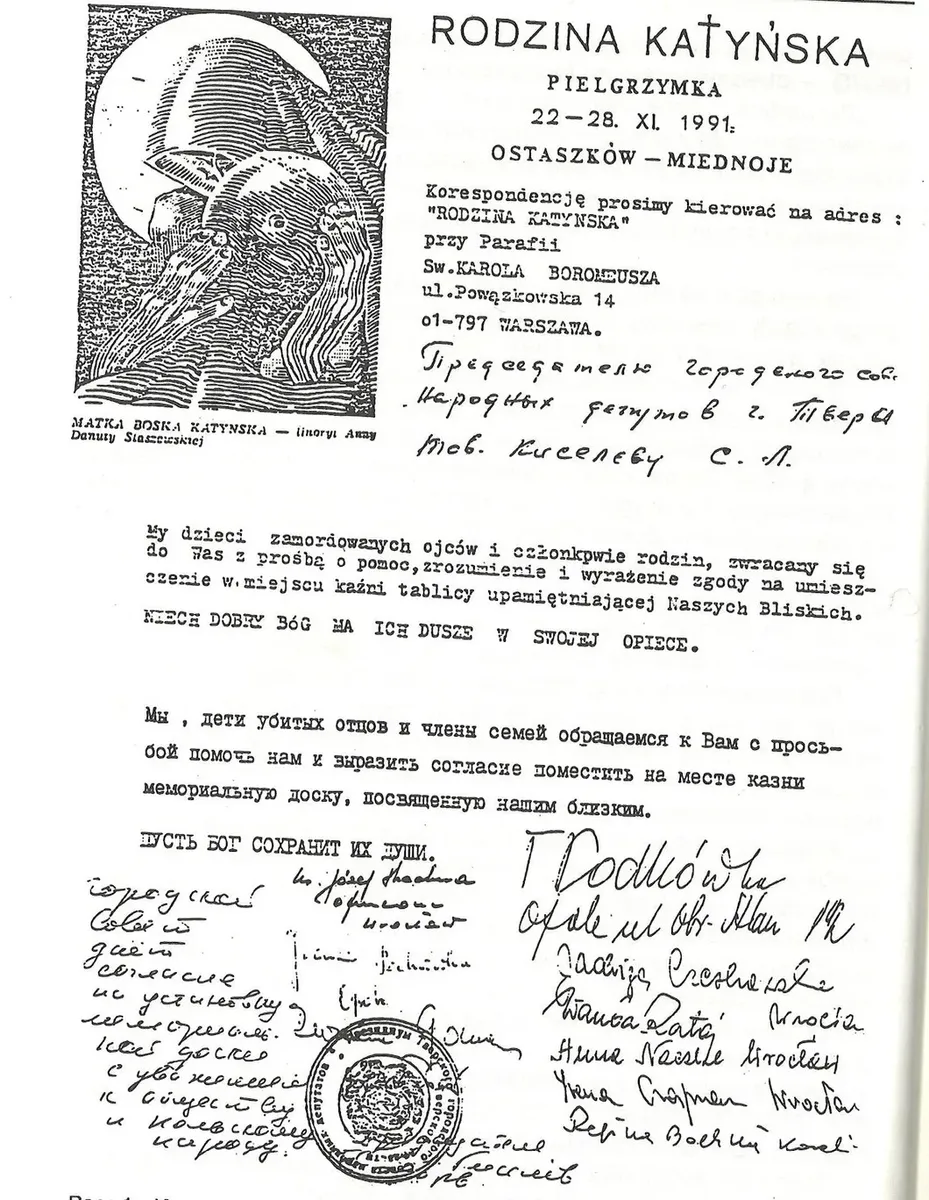 RODZINA KATYŃSKA
PIELGRZYMKA
22–28. XI. 1991.
OSTASZKÓW – MIEDNOJE
Korespondencję prosimy kierować na adres :
"RODZINA KATYNSKA"
przy Parafii
Sw.KAROLA BOROMEUSZA
ul.Powązkowska 14
o1-797 WARSZAWA.
Председателю городского сов.
Народных депутатов г. Твери
тов. Киселеву С. Л.
MATKA BOSKA KATYNSKA — linoryt Anny
Danuty Staszewskiej
My dzieci zamordowanych ojców i członkpwie rodzin, zwracamy się
do Was z prośbą o pomoc,zrozumienie i wyrażenie zgody na umiesz-
czenie w.miejscu kaźni tablicy upamiętniającej Naszych Bliskich.
NIECH DOBRY BóG MA ICH DUSZE W SWOJEJ OPIECE.
Мы , дети убитых отцов и члены семей обращаемся к Вам с прось-
бой помочь нам и выразить согласие поместить на месте казни
мемориальную доску, посвященную нашим близким.
ПУСТЬ БОГ СОХРАНИТ ИХ ДУШИ.
городской
Совет
дает
согласие
на установку
мемориаль.
ной доски
с уважением
к обществу
и польскому
народу.
ks. Józef
Wrocław
Opole ul Obr.
Jadwiga
Wanda Rataj
Anna Wrocław
Irena Wrocław
Regina